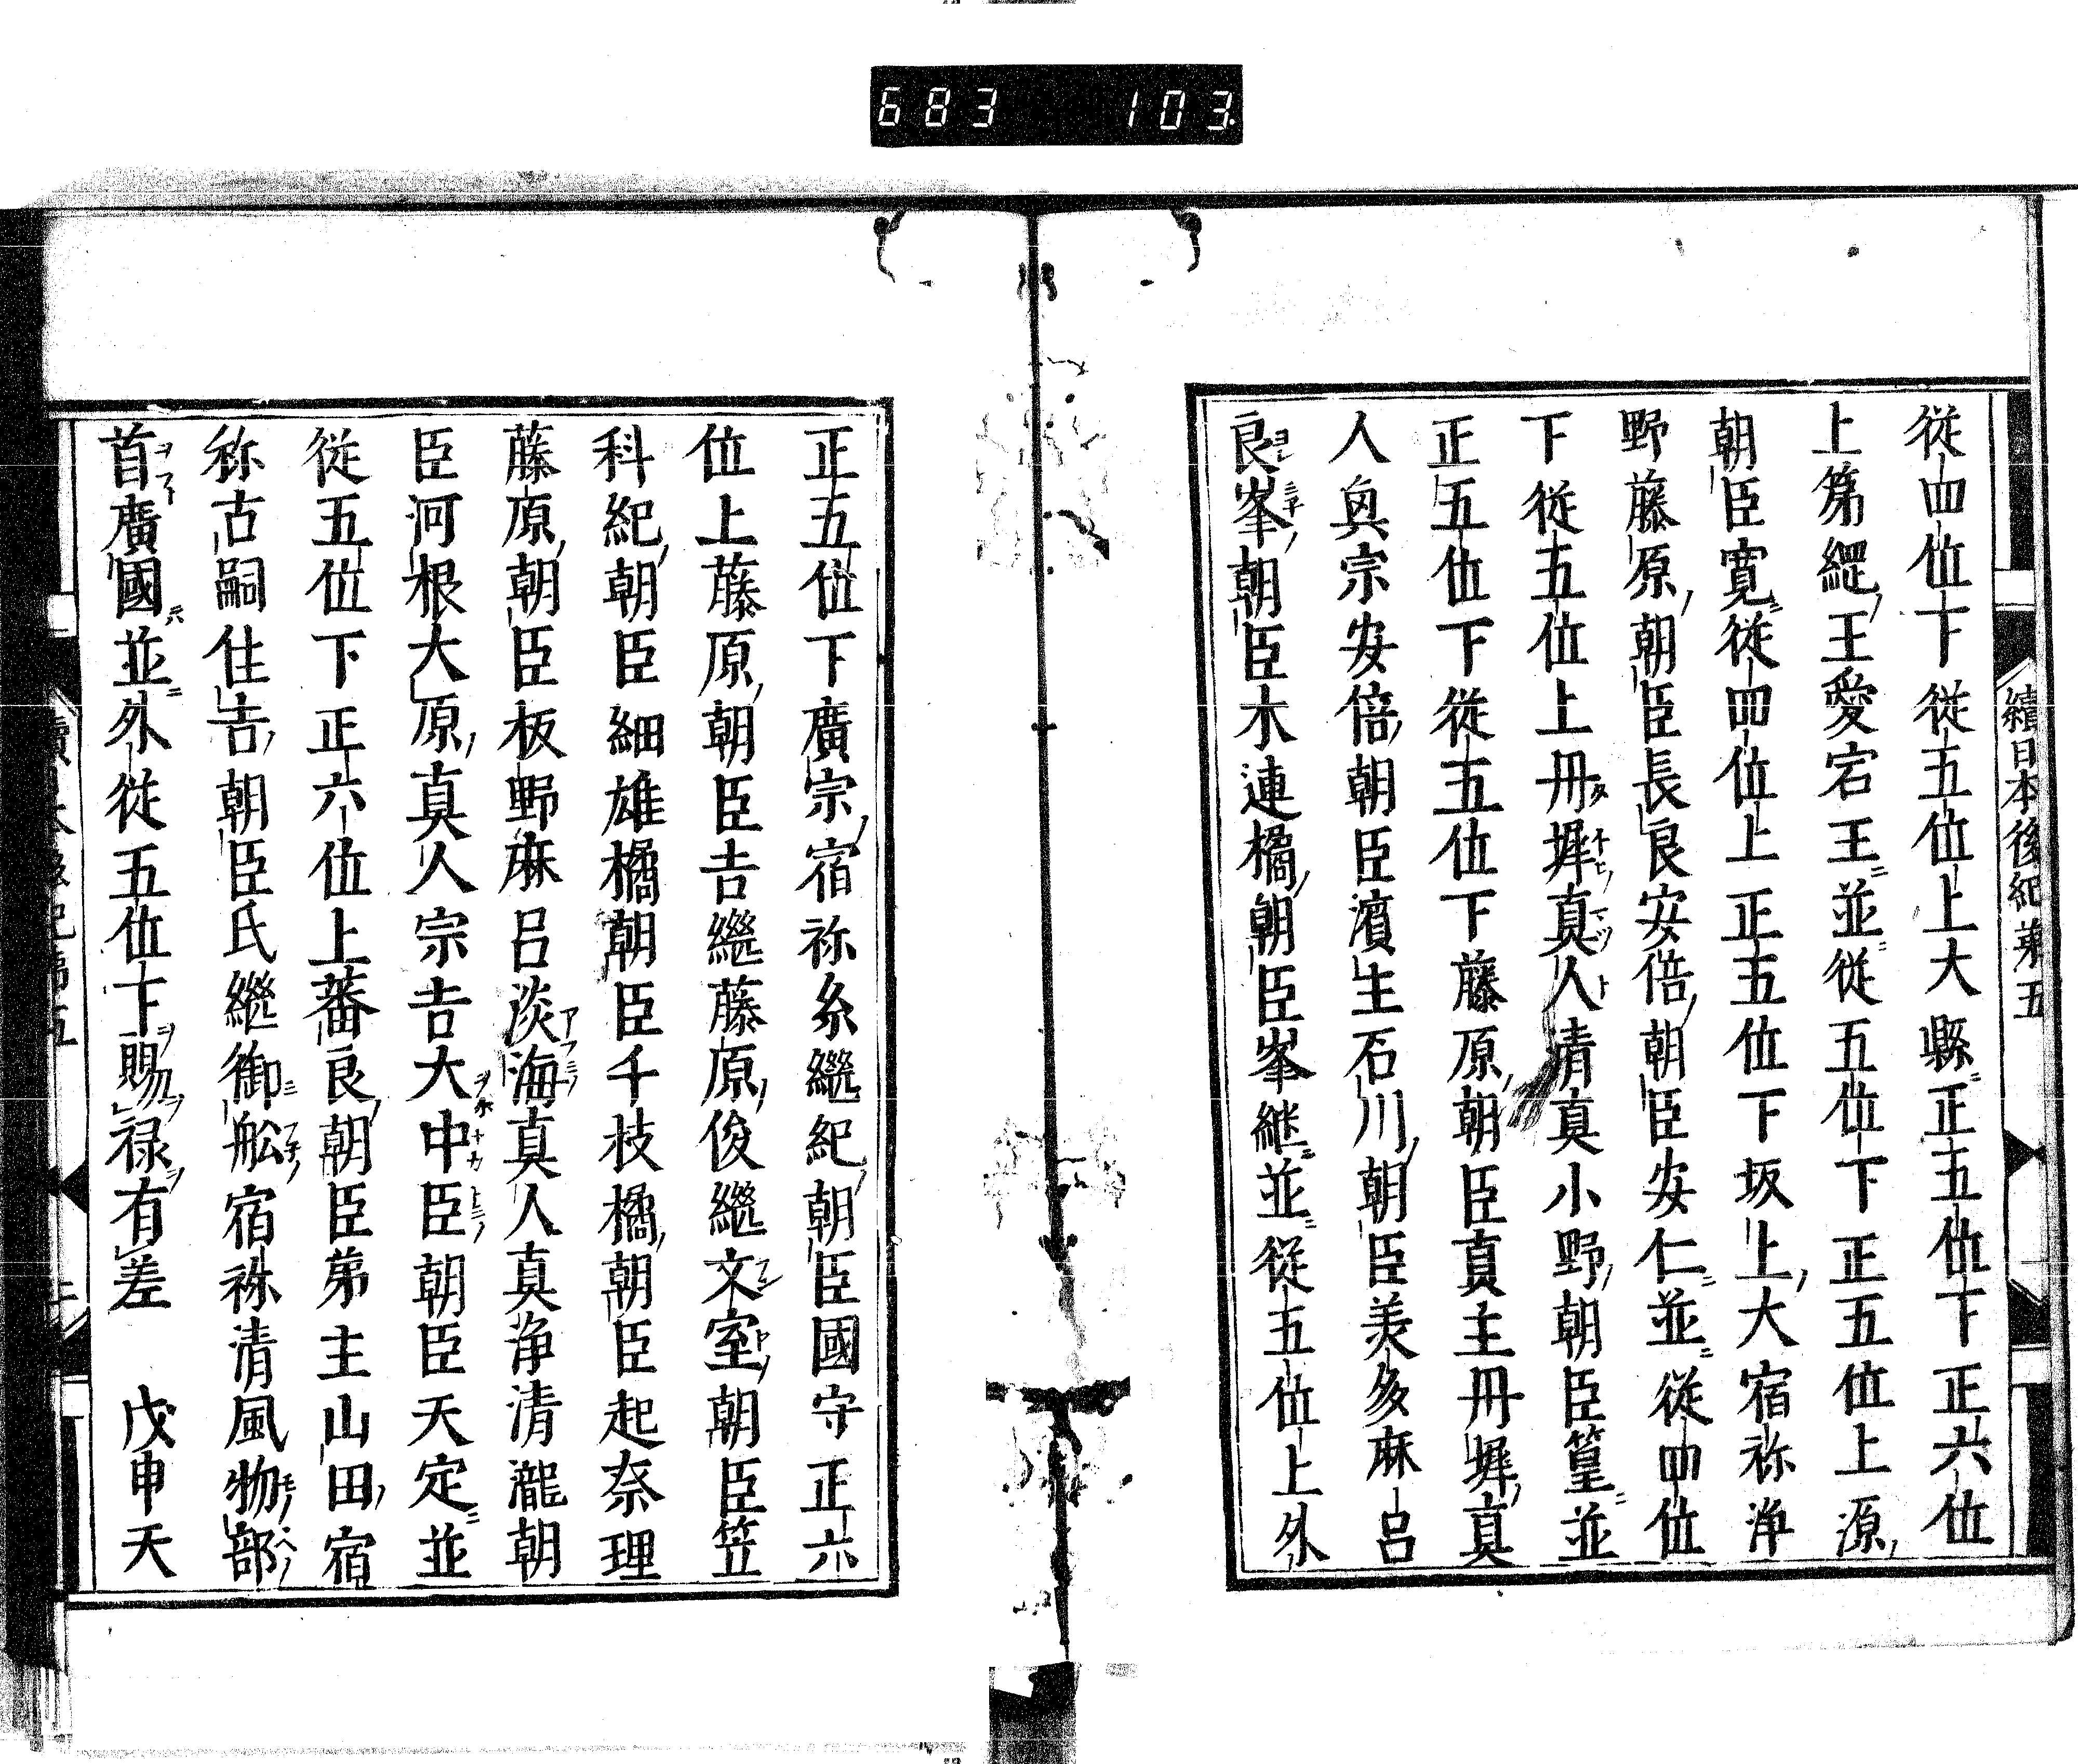 683 103
續日本後紀第五
從四位下從五位上大縣正五位下正六位
上第綛王愛宕王並從五位下正五位上源
朝臣寛從四位上正五位下坂上大宿祢浄
野藤原朝臣長良安倍朝臣安仁並從四位
下從五位上丹墀真人清真小野朝臣篁並
正五位下從五位下藤原朝臣貞主丹墀真
人㒵宗安倍朝臣濱主石川朝臣美多麻呂
良峯朝臣木連橘朝臣峯継並從五位上外
正五位下廣宗宿祢糸繼紀朝臣國守正六
位上藤原朝臣吉繼藤原俊繼文室朝臣笠
科紀朝臣細雄橘朝臣千枝橘朝臣起奈理
藤原朝臣板野麻呂淡海真人真浄清瀧朝
臣河根大原真人宗吉大中臣朝臣天定並
從五位下正六位上蕃良朝臣弟主山田宿
祢古嗣住吉朝臣氏繼御舩宿祢清風物部
首廣國並外從五位下賜禄有差　戊申天